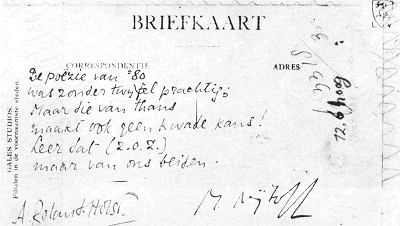 BRIEFKAART
CORRESPONDENTIE
ADRES
De poëzie van '80
was zonder twijfel prachtig;
Maar die van thans
maakt ook geen kwade kans!
Leer dat (Z.O.Z.)
maar van ons beiden.
A. Roland Holst.
M. Nijhoff
GALES STUDIOS.
Filialen in de voornaamste steden.